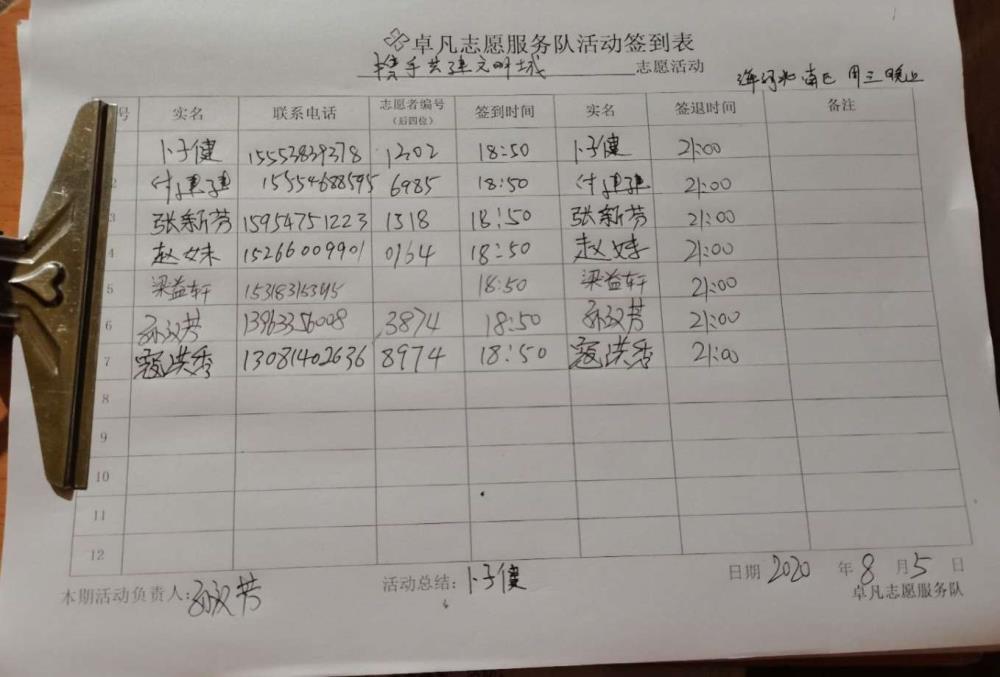 卓凡志愿服务队活动签到表
携手共建文明城 志愿活动
南区 周三晚上
号 实名 联系电话 志愿者编号（后四位） 签到时间 实名 签退时间 备注
卜子健 15553839378 1202 18:50 卜子健 21:00
2 15554688595 6985 18:50 21:00
3 张新芳 15954751223 1318 18:50 张新芳 21:00
4 赵妹 15266009901 0164 18:50 赵妹 21:00
5 梁益轩 18:50 梁益轩 21:00
6 孙汉芳 13963356008 3874 18:50 孙汉芳 21:00
7 寇洪秀 13081402636 8974 18:50 寇洪秀 21:00
8
9
10
11
12
本期活动负责人: 孙汉芳 活动总结: 卜子健 日期 2020 年 8 月 5 日
卓凡志愿服务队